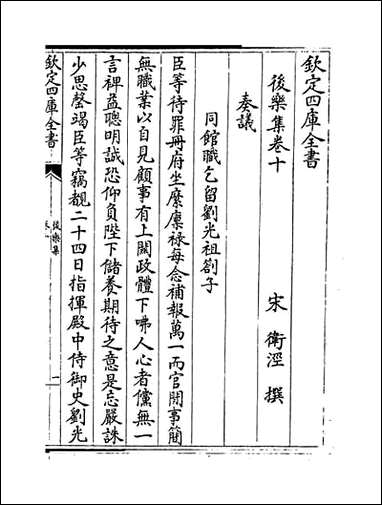 欽定四庫全書
後樂集卷十
宋 衛涇 撰
奏議
同館職乞留劉光祖劄子
臣等待罪冊府坐縻廩祿每念補報萬一而官閒事簡
無職業以自見顧事有上闗政體下咈人心者儻無一
言裨益聰明誠恐仰負陛下儲養期待之意是忘嚴誅
少思罄竭臣等竊覩二十四日指揮殿中侍御史劉光
欽定四庫全書
後樂集
卷十
一